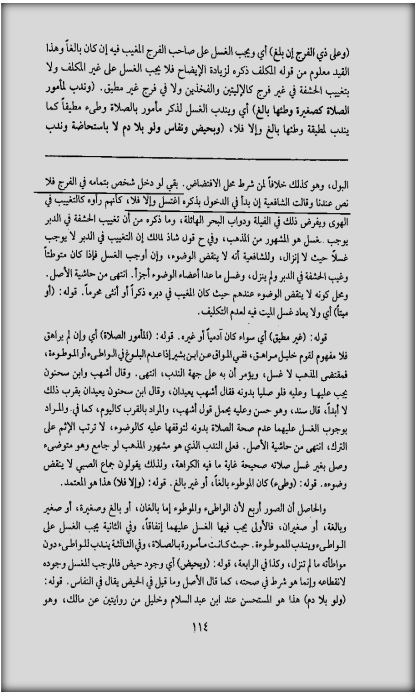 (وعلى ذي الفرج إن بلغ) أي ويجب الغسل على صاحب الفرج المغيب فيه إن كان بالغاً وهذا
القيد معلوم من قوله المكلف ذكره لزيادة الإيضاح فلا يجب الغسل على غير المكلف ولا
بتغييب الحشفة في غير فرج كالإليتين والفخذين ولا في فرج غير مطيق. (وندب لمأمور
الصلاة كصغيرة وطئها بالغ) أي ويندب الغسل لذكر مأمور بالصلاة وطىء مطيقاً كما
يندب لمطيقة وطئها بالغ وإلا فلا، (وبحيض ونفاس ولو بلا دم لا باستحاضة وندب
البول، وهو كذلك خلافاً لمن شرط محل الافتضاض. بقي لو دخل شخص بتمامه في الفرج فلا
نص عندنا وقالت الشافعية إن بدأ في الدخول بذكره اغتسل وإلا فلا، كأنهم رأوه كالتغييب في
الهوى ويفرض ذلك في الفيلة ودواب البحر الهائلة، وما ذكره من أن تغييب الحشفة في الدبر
يوجب. غسل هو المشهور من المذهب، وفي ح قول شاذ لمالك إن التغييب في الدبر لا يوجب
غسلاً حيث لا إنزال، وللشافعية أنه لا ينقض الوضوء، وإن أوجب الغسل فإذا كان متوطئاً
وغيب الحشفة في الدبر ولم ينزل، وغسل ما عدا أعضاء الوضوء أجزأ. انتهى من حاشية الأصل.
ومحل كونه لا ينقض الوضوء عندهم حيث كان المغيب في دبره ذكراً أو أنثى محرماً. قوله: (أو
ميتاً) أي ولا يعاد غسل الميت فيه لعدم التكليف.
قوله: (غير مطيق) أي سواء كان آدمياً أو غيره. قوله: (لمأمور الصلاة) أي وإن لم يراهق
فلا مفهوم لقوم خليل مراهق، ففي المواق عن ابن بشير إذا عدم البلوغ في الواطىء أو الموطوءة،
فمقتضى المذهب لا غسل، ويؤمر أن به على جهة الندب، انتهى. وقال أشهب وابن سحنون
يجب عليهما وعليه فلو صليا بدونه فقال أشهب يعيدان، وقال ابن سحنون يعيدان بقرب ذلك
لا أبداً، قال سند، وهو حسن وعليه يحمل قول أشهب، والمراد بالقرب كاليوم، كما في. والمراد
بوجوب الغسل عليهما عدم صحة الصلاة بدونه لتوقفها عليه كالوضوء، لا ترتب الإثم على
الترك، انتهى من حاشية الأصل. فعلى الندب الذي هو مشهور المذهب لو جامع وهو متوضىء
وصلى بغير غسل صلاته صحيحة غاية ما فيه الكراهة، ولذلك يقولون جماع الصبي لا ينقض
وضوءه. قوله: (وطىء) كان الموطوء بالغاً، أو غير بالغ. قوله: (وإلا فلا) هذا هو المعتمد.
والحاصل أن الصور أربع لأن الواطىء والموطوء إما بالغان، أو بالغ وصغيرة، أو صغير
وبالغة، أو صغيران، فالأولى يجب فيها الغسل عليهما إتفاقاً، وفي الثانية يجب الغسل على
الواطىء ويندب للموطوءة. حيث كانت مأمورة بالصلاة، وفي الثالثة يندب للواطىء دون
مواطأته ما لم تنزل، وكذا في الرابعة، قوله: (وبحيض) أي وجود حيض فالموجب للغسل وجوده
لانقطاعه وإنما هو شرط في صحته، كما قال الأصل وما قيل في الحيض يقال في النفاس. قوله:
(ولو بلا دم) هذا هو المستحسن عند ابن عبد السلام وخليل من روايتين عن مالك، وهو
١١٤